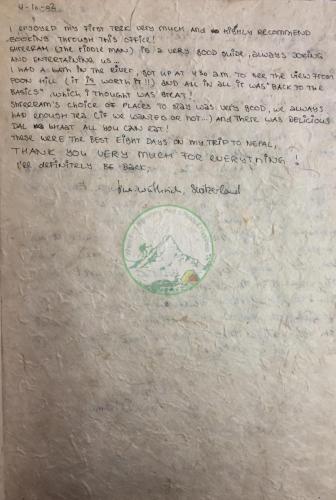 I ENJOYED MY FIRST TREK VERY MUCH AND HIGHLY RECOMMEND
BOOKING THROUGH THIS OFFICE!
SHREERAM (THE MIDDLE MAN) IS A VERY GOOD GUIDE, ALWAYS JOKING
AND ENTERTAINING US...
I HAD A BATH IN THE RIVER, GOT UP AT 4 30 A.M. TO SEE THE VIEW FROM
POON HILL (IT IS WORTH IT!!) AND ALL IN ALL IT WAS "BACK TO THE
BASICS", WHICH I THOUGHT WAS GREAT!
SHREERAM'S CHOICE OF PLACES TO STAY WAS VERY GOOD, WE ALWAYS
HAD ENOUGH TEA (IF WE WANTED OR NOT...) AND THERE WAS DELICIOUS
DAL BHAAT ALL YOU CAN EAT!
THESE WERE THE BEST EIGHT DAYS ON MY TRIP TO NEPAL,
THANK YOU VERY MUCH FOR EVERYTHING!
I'LL DEFINITELY BE BACK,
Switzerland